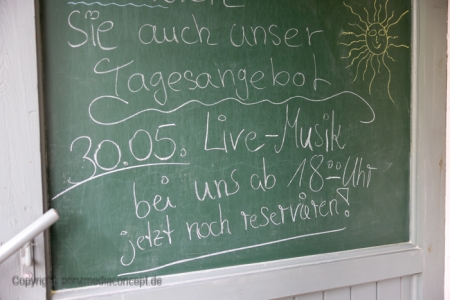 Sie auch unser
Tagesangebot
30.05. Live-Musik
bei uns ab 18⁰⁰ Uhr
jetzt noch reservieren!
Copyright prinzmediaconcept.de